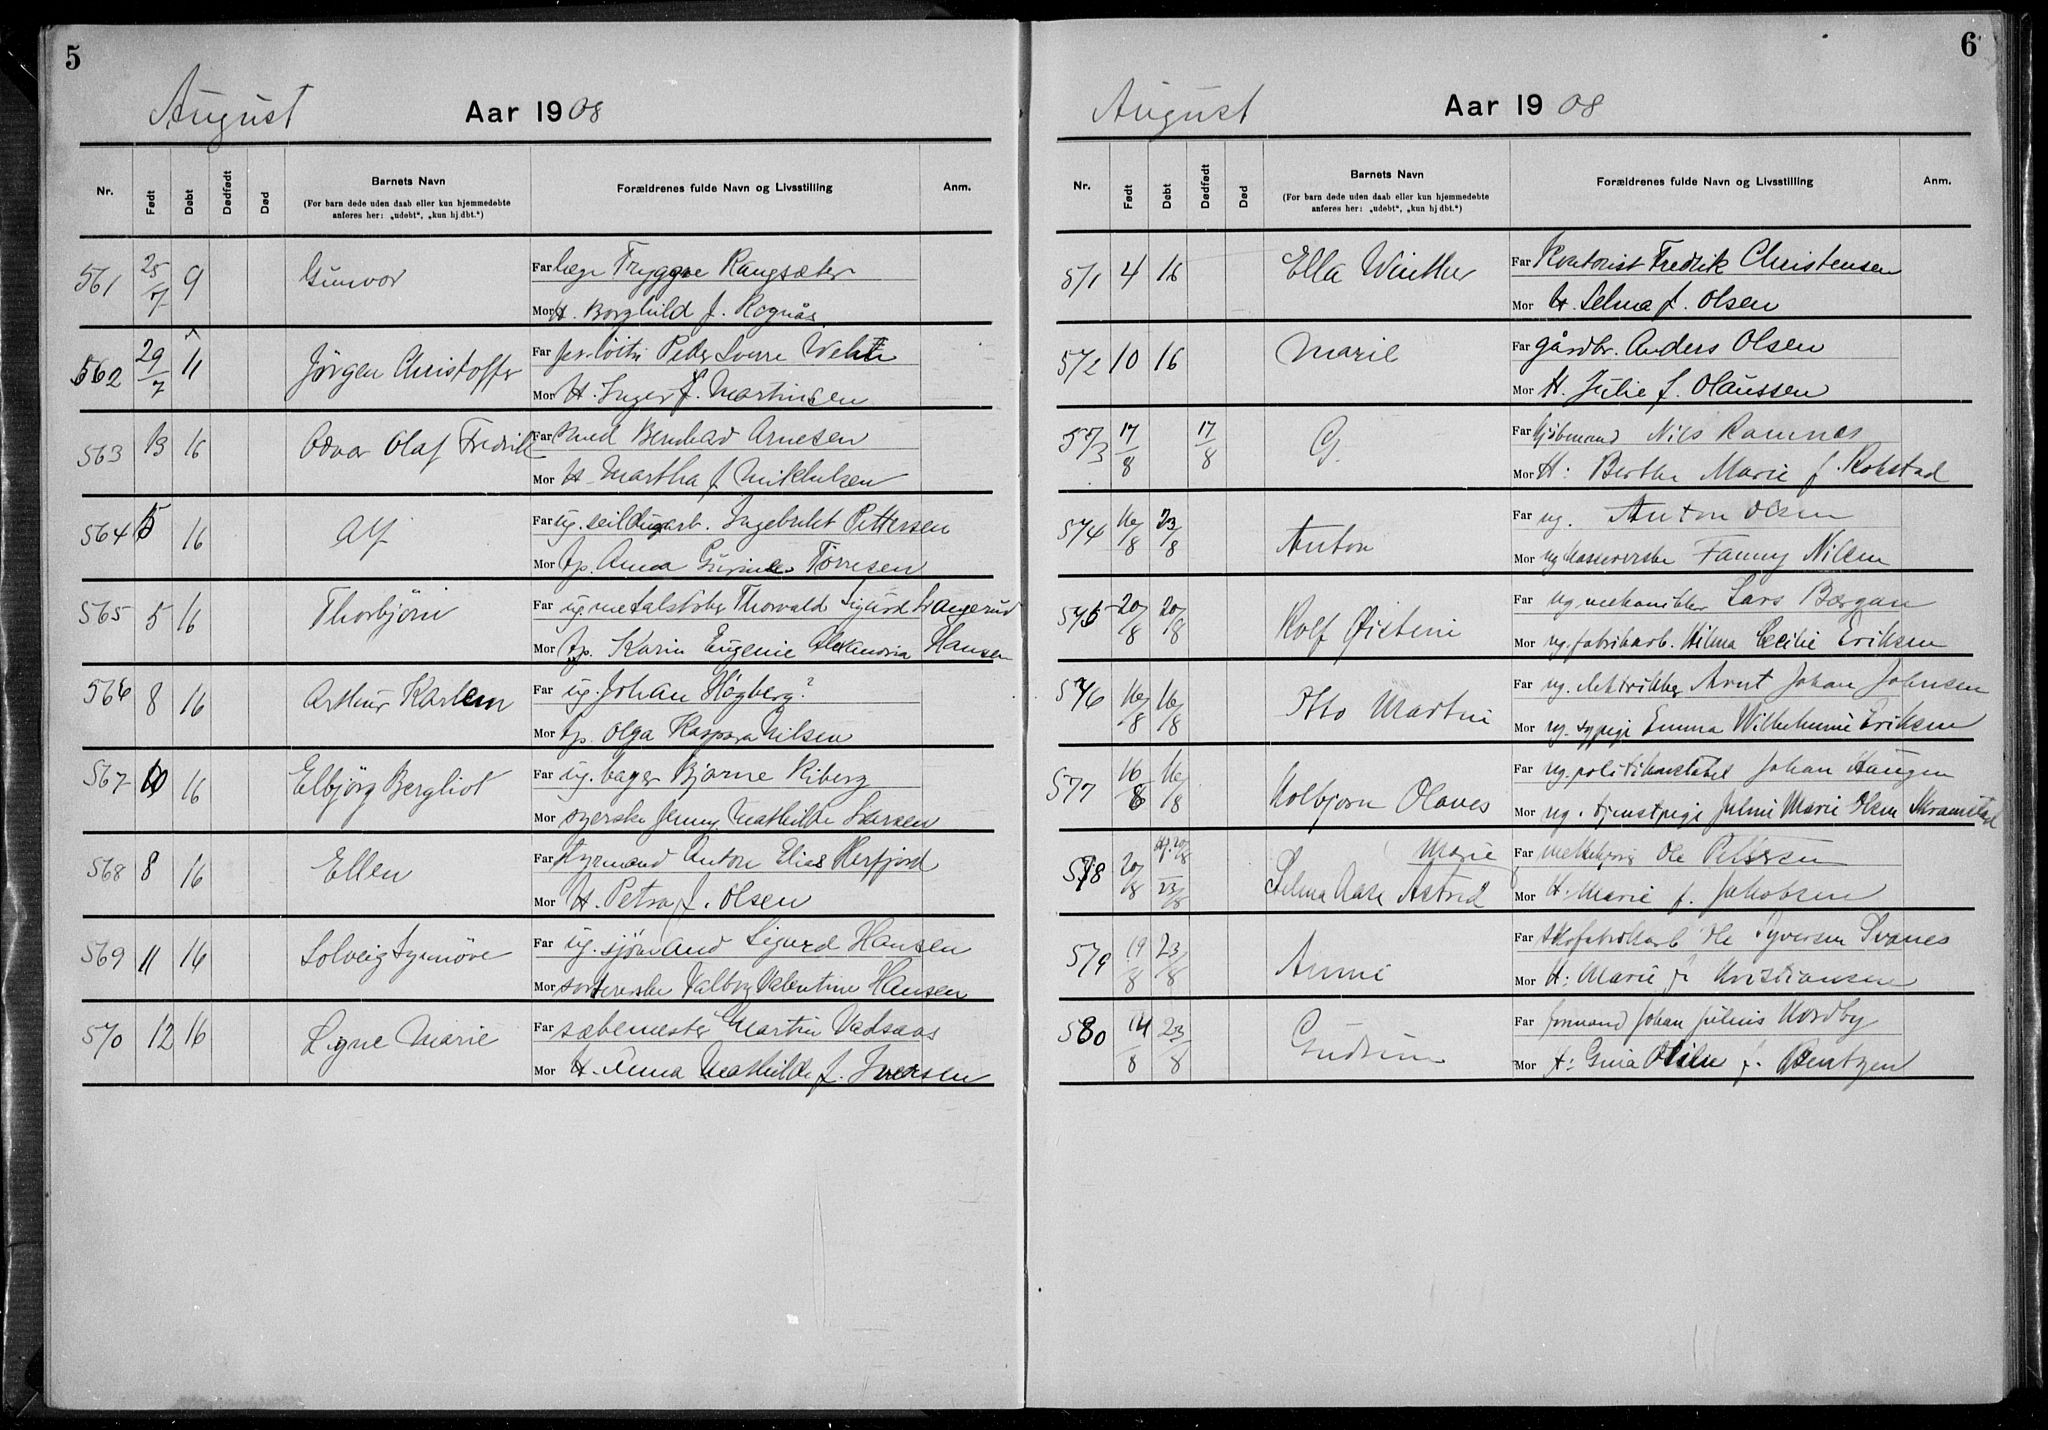 5
August Aar 1908
Nr. Født Døbt Dødfødt Død Barnets Navn Forældrenes fulde Navn og Livsstilling Anm.
(For barn døde uden daab eller kun hjemmedøbte
anføres her: „udøbt“, „kun hj.dbt.“)
561 25/7 9 Gunvor Far læge Tryggve Rangsæter
Mor H. Borghild f. Rognås
562 29/7 11 Jörgen Christoffer Far Peder Sverre
Mor H. Inger f. Martinsen
563 13 16 Odvar Olaf Fredrik Far smed Bernhad Arnesen
Mor H. Martha f. Mikkelsen
564 5 16 Alf Far ug. Ingebrikt Pettersen
Mor tp. Anna Gurine Tørresen
565 5 16 Thorbjörn Far ug. metalstöber Thorvald Sigurd Svangerud
Mor tp. Karin Eugenie Alexandria Hansen
566 8 16 Arthur Karlem Far ug. Johan Högberg?
Mor tp. Olga Kaspara Nilsen
567 10 16 Elbjörg Bergliot Far ug. bager Bjarne Riberg
Mor syerske Jenny Mathilde Larsen
568 8 16 Ellen Far styrmand Anton Elias Herfjord
Mor H. Petra f. Olsen
569 11 16 Solveig Synnöve Far ug. sjömand Sigurd Hansen
Mor sorterерske Valborg Valentine Hansen
570 12 16 Signe Marie Far sæbemester Martin Vadsaas
Mor H. Anna Mathilde f. Iversen
6
August Aar 1908
Nr. Født Døbt Dødfødt Død Barnets Navn Forældrenes fulde Navn og Livsstilling Anm.
(For barn døde uden daab eller kun hjemmedøbte
anføres her: „udøbt“, „kun hj.dbt.“)
571 4 16 Ella Winther Far Kontorist Fredrik Christensen
Mor H. Selma f. Olsen
572 10 16 Marie Far gårdbr. Anders Olsen
Mor H. Julie f. Olaussen
573 17/8 17/8 G. Far kjöbmand Nils Ramnes
Mor H: Berthe Marie f. Rokstad
574 16/8 23/8 Anton Far ug. Anton Olsen
Mor ug. Fanny Nilsen
575 20/8 20/8 Rolf Øistein Far ug mekaniker Lars Børgan
Mor ug. fabrikarb. Hilma Cecilie Eriksen
576 16/8 16/8 Otto Martin Far ug. elektrikker Arnt Johan Johnsen
Mor ug. sypige Emma Wilhelmine Eriksen
577 16/6 16/8 Kolbjørn Olaves Far ug. politikonstabel Johan Haugen
Mor ug. tjenestpige Julie Marie Olsen Skramstad
578 20/8 Hj. 20/8 23/8 Marie Far Ole Petersen
Selma Aase Astrid Mor H: Marie f. Jakobsen
579 19/8 23/8 Anni Far Ole Syversen Svanes
Mor H: Marie f. Kristiansen
580 14/8 23/8 Gudrun Far formand Johan Julius Nordby
Mor H: Gina f. Bentzen